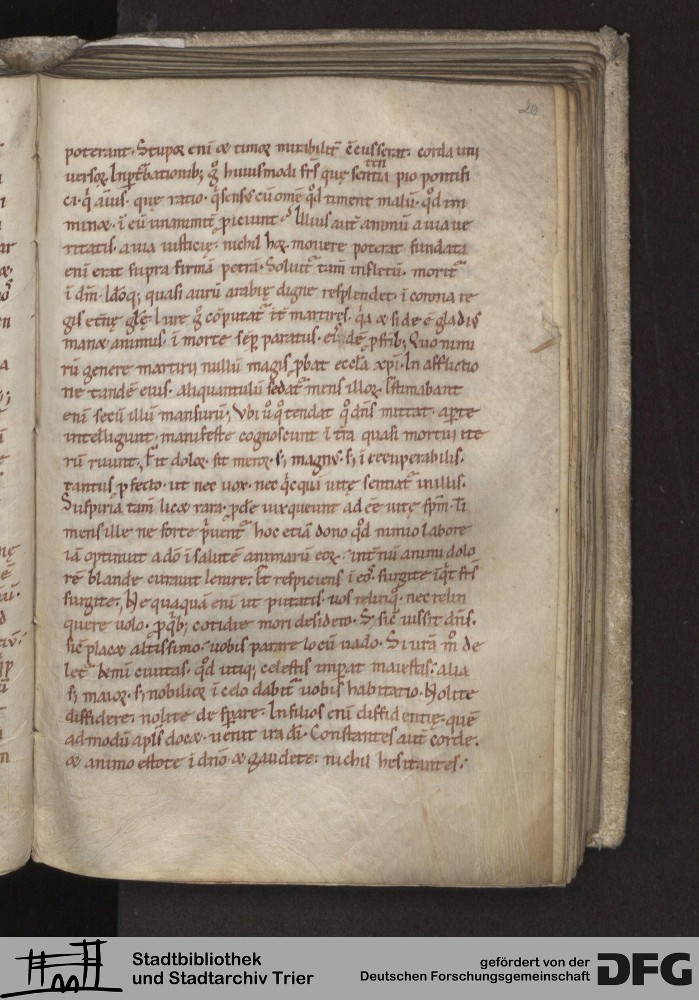 20
poterant. Stupor enī & timor mirabilit̄ c̄cusserat corda uni
uersor̄.
huiusmodi fr̄s quę sentēntia pio pontifi
quę ratio. cū om̄e qd̄ timent malū. qd̄ im
minæ. ī eū unanimit̄ ꝓiciunt. Illius aut̄ animū a uia ue
ritatis. a uia iusticię. nichil hor̄ mouere poterat fundata
enī erat supra firmā petrā. Soluit᷑ tam̄ in fletū. morit᷑
ī dn̄o. quasi aurū arabię digne resplendet. ī corona re
gis et̄nę gl̄ę. Iure g̊ cōputat᷑ īt̄ martires. q̇a & si de ē gladi9
manæ animus. ī morte sēp paratus. Quo nimi
rū genere martirii nullū magis ꝓbat eccl̄a xp̄i. In afflictio
ne tandē eius. aliquantulū sedat᷑ mens illor̄. Estimabant
enī secū illū mansurū. Ubi u̇ q̊ tendat q̊ dn̄s mittat. aꝑte
intelligunt. manifeste cognoscunt ī t̄ra quasi mortui ite
rū ruunt. Fit dolor. fit meror. s; magn9. s; ī recuperabilis.
tantus ꝓfecto. ut nec uox. nec q̇cquā uitę sentiat᷑ in illis.
Suspiria tam̄ licæ rara. ad ēē uitę sp̄m.
mens ille ne forte p̄uenit᷑ hoc etiā dono qd̄ nimio labore
iā optinuit a dō ī salutē animarū eor̄. int̄nū animi dolo
rē blande curauit lenire. Et respiciens ī eos. surgite īq̇t fr̄s
surgite. Ne quaquā enī ut putatis. uos relinq̊. nec relin
quere uolo. ꝓ q̇b; cotidie mori desidero. S; sic̄ iussit dn̄s.
sic̄ placæ altissimo. uobis parare locū uado. Si urām de
let᷑ hominū ciuitas. qd̄ utiq; celestis imꝑat maiestas. alia
s; maior. s; nobilior ī celo dabit᷑ uobis habitatio. Nolite
diffidere. nolite desꝑare. In filios enī diffidentię. quē
ad modū apl̄s docæ. uenit ira dī. Constantes aut̄ corde.
& animo estote ī dn̄o & gaudete. nichil hesitantes.
Stadtbibliothek
und Stadtarchiv Trier
gefördert von der
Deutschen Forschungsgemeinschaft
DFG